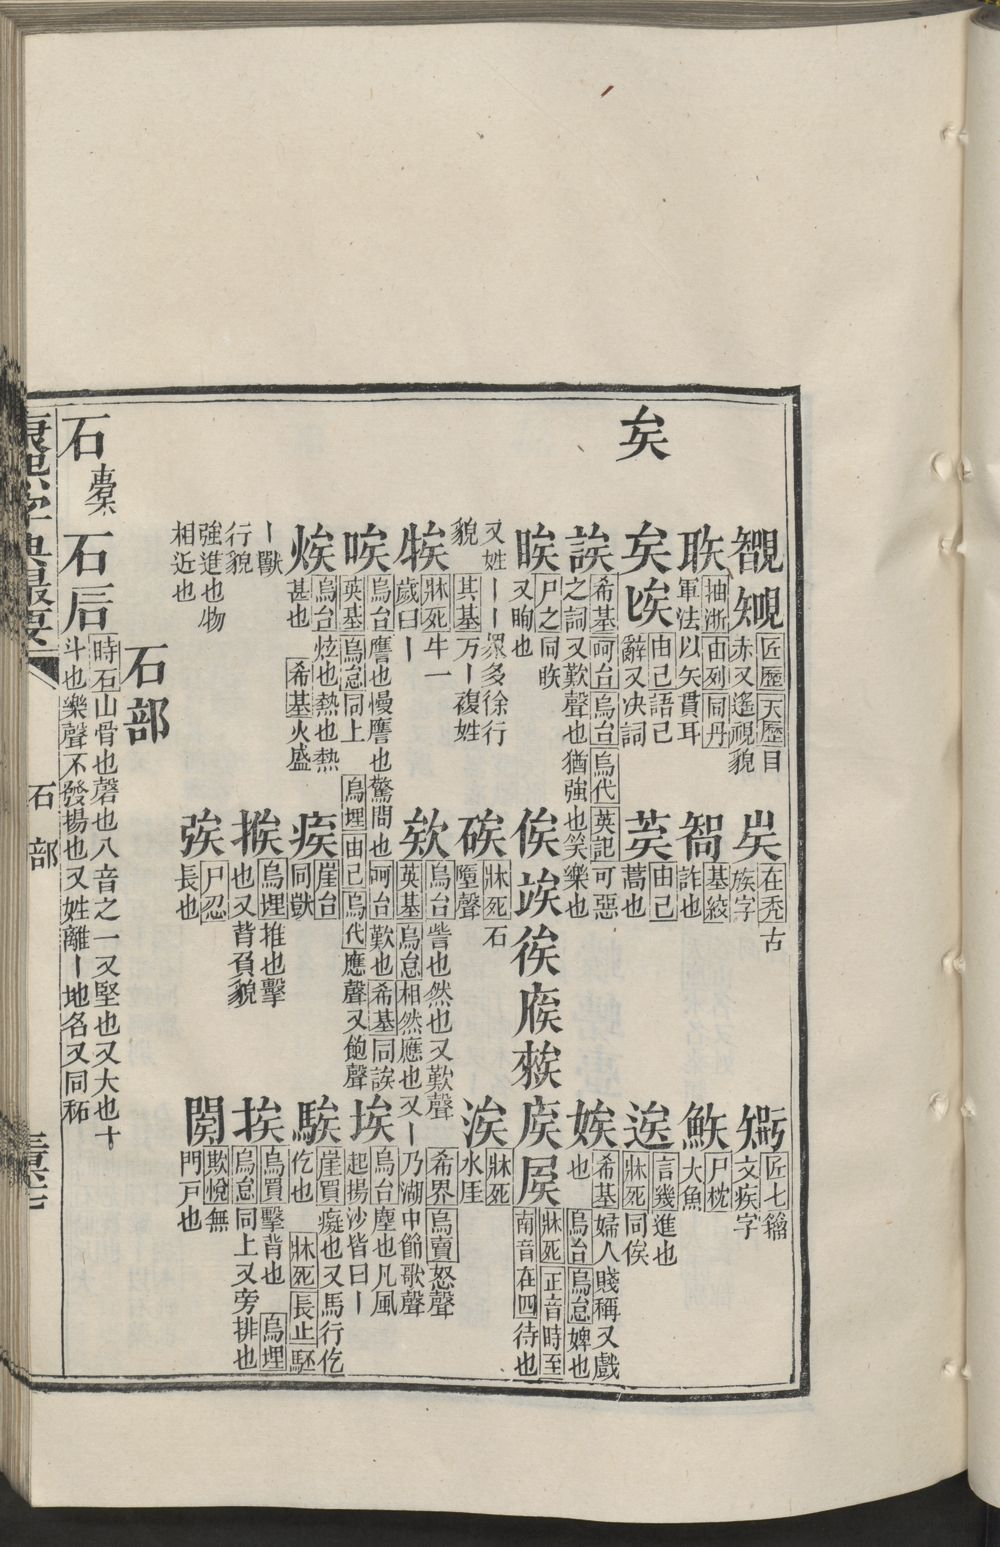 矣
覞䂓匠歷天歷目赤又遙視貌
㕞在禿古族字
匠七籀文疾字
抽浙由列同丹軍法以矢貫耳
𥏼基綏詐也
尸枕大魚
矣㕥唉由己語己辭又决詞
䒷由己蒿也
言幾進也牀死同俟
誒希基呵台烏台烏代英記可惡之詞又歎聲也猶強也笑樂也
娭希基婦人賤稱又戲也烏台烏怠婢也
尸之同眣又眴也
俟竢𢓪㕈
牀死正音時至南音在四待也
又姓丨丨衆多徐行貌其基万丨複姓
牀死石墮聲
涘牀死水厓
牀死牛一歲曰丨
欸烏台訾也然也又歎聲英基烏怠相然應也又丨乃湖中節歌聲希界烏賣怒聲
唉烏台譍也慢譍也驚問也呵台歎也希基同誒英基烏怠同上烏埋由己烏代應聲又飽聲
埃烏台塵也凡風起揚沙皆曰丨
烏台炫也熱也熱甚也希基火盛
崖台同獃
騃崖買癡也又馬行仡仡也牀死長止駓丨獸行貌
烏埋推也擊也又背負貌
挨烏買擊背也烏埋烏怠同上又旁排也強進也物相近也
尸忍長也
欺悅無門戸也
石部
石橐石后時石山骨也磬也八音之一又堅也又大也十斗也樂聲不發揚也又姓離丨地名又同祏
康熙字典最要
石部